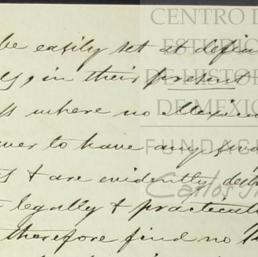 be easily set at defia
in their present
where no Mexican
ever to have any
& are evidently de
legally & practical
therefore find no
CENTRO D
ESTUDIO
DE HISTOR
DE MEXIC
FUNDAC
Carlos